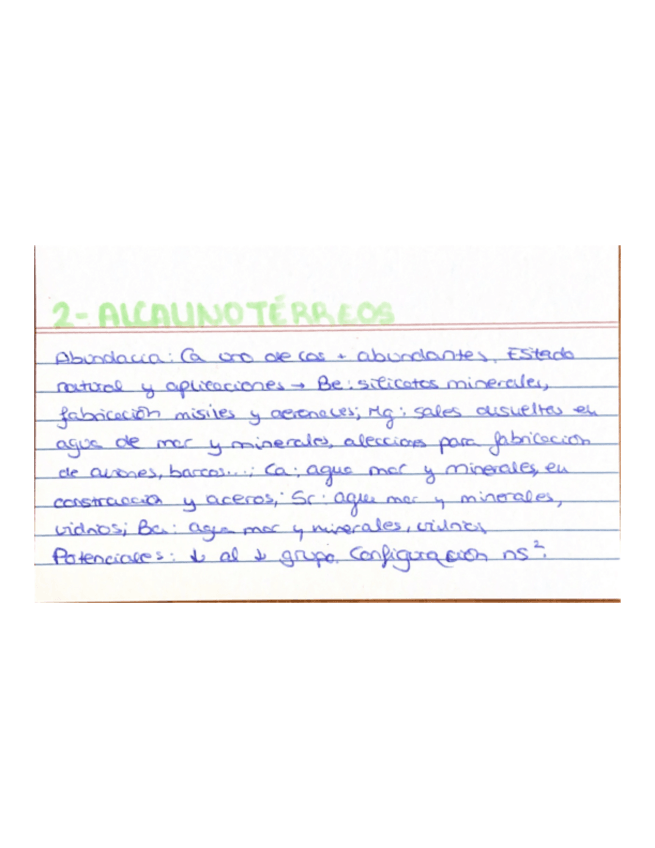 2- ALCALINOTÉRREOS
Abundacia: Ca uno de los + abundantes. Estado
natural y aplicaciones → Be: silicatos minerales,
fabricación misiles y aeronaves; Mg: sales disueltas en
agua de mar y minerales, aleccions para fabricacion
de aviones, barcos...; Ca: agua mar y minerales, en
construccion y aceros; Sr: agua mar y minerales,
vidrios; Ba: agua mar y minerales, vidrios
Potenciales: ↓ al ↓ grupo. Configuración ns².